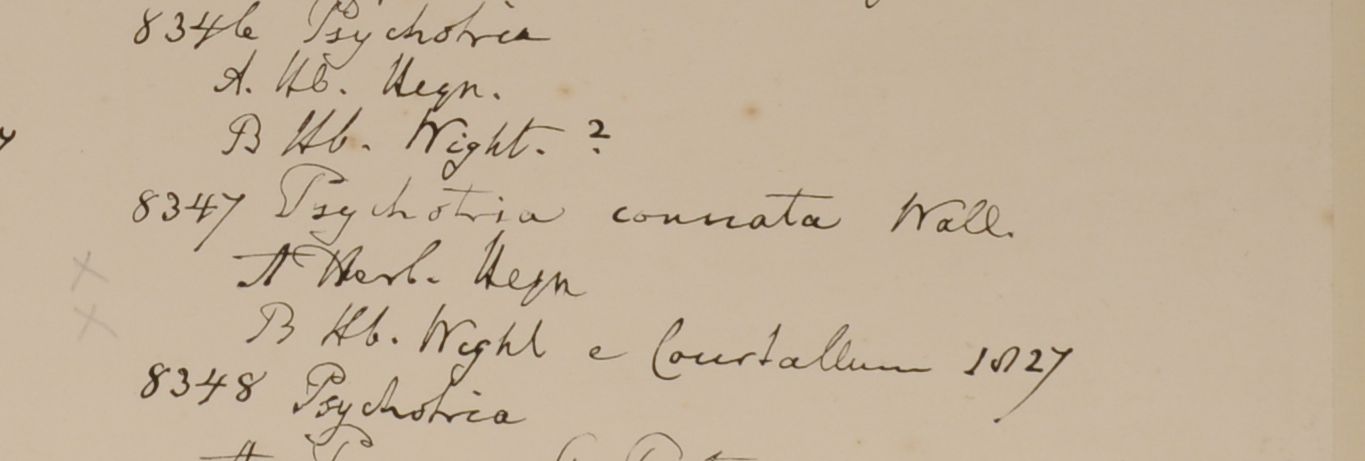 8346 Psychotria
A. Hb. Heyn.
B Hb. Wight. ?
8347 Psychotria connata Wall.
A Herb. Heyn
B Hb. Wight e Courtallum 1827
8348 Psychotria